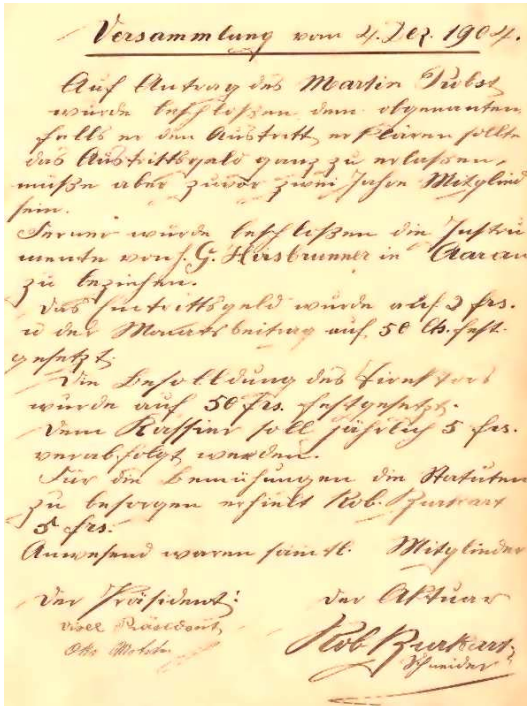 Versammlung vom 4. Dez. 1904.
Auf Antrag des Martin Probst
wurde beschloßen dem obgenanten
falls er den Austritt erklären sollte
das Austrittsgeld ganz zu erlassen,
müße aber zuvor zwei Jahre Mitglied
sein.
Ferner wurde beschloßen die Instru
mente von J. G. Hirsbrunner in Aarau
zu beziehen.
Das Eintrittsgeld wurde auf 2 frs.
u der Monatsbeitrag auf 50 Cts. fest-
gesetzt.
Die Besolldung des Direktors
wurde auf 50 frs. festgesetzt.
Dem Kassier soll jährlich 5 frs.
verabfolgt werden.
Für die Bemühungen die Statuten
zu besorgen erhielt Rob. Burkart
5 frs.
Anwesend waren sämtl. Mitglieder
Der Präsident:
der Aktuar
Vize Präsident
Otto
Rob. Burkart
Schneider